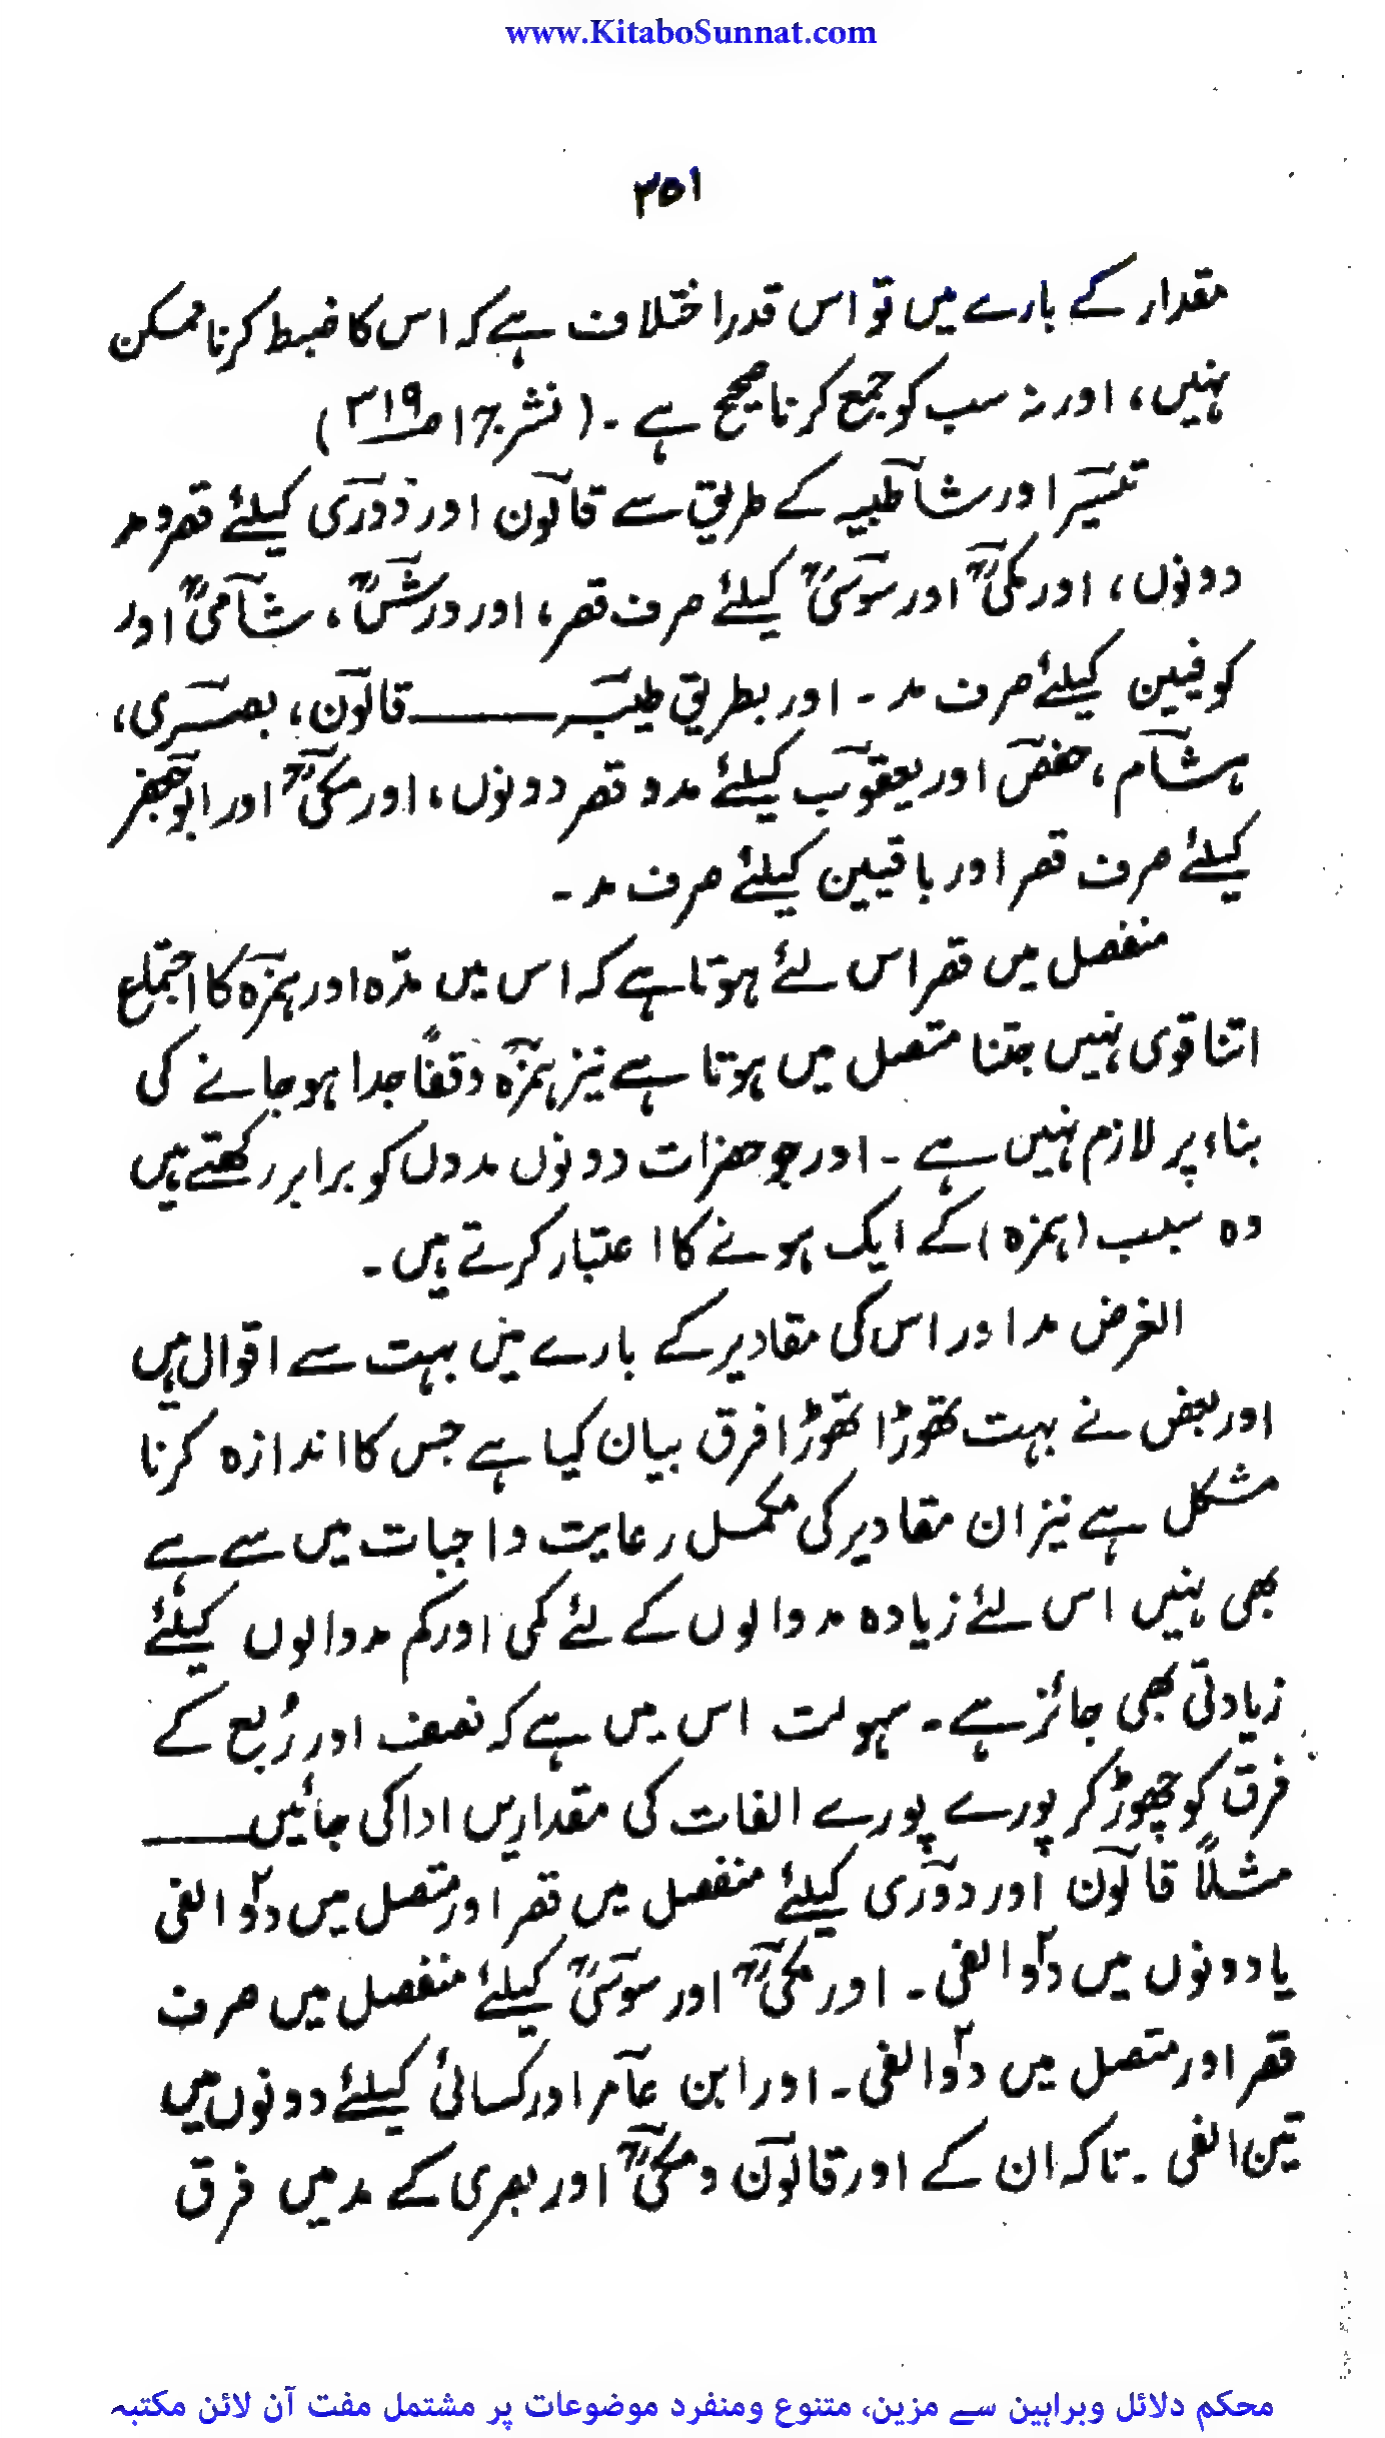 www.KitaboSunnat.com
۳۵۱
مقدار کے بارے میں تو اس قدر اختلاف ہے کہ اس کا ضبط کرنا ممکن
نہیں، اور نہ سب کو جمع کرنا صحیح ہے ۔ (نشر ج ۱ ص ۳۱۹)
تیسیر اور شاطبیہ کے طریق سے قالون اور دوری کیلئے قصر و مد
دونوں، اور مکیؒ اور سوسیؒ کیلئے صرف قصر، اور ورشؒ، شامیؒ اور
کوفیین کیلئے صرف مد ۔ اور بطریق طیبہ ــــــ قالون، بصری،
ہشام، حفص اور یعقوب کیلئے مد و قصر دونوں، اور مکیؒ اور ابوجعفر
کیلئے صرف قصر اور باقیین کیلئے صرف مد ۔
منفصل میں قصر اس لئے ہوتا ہے کہ اس میں مدّہ اور ہمزہ کا اجتماع
اتنا قوی نہیں جتنا متصل میں ہوتا ہے نیز ہمزہ وقفاً جدا ہو جانے کی
بناء پر لازم نہیں ہے ۔ اور جو حضرات دونوں مدوں کو برابر رکھتے ہیں
وہ سبب (ہمزہ) کے ایک ہونے کا اعتبار کرتے ہیں ۔
الغرض مد اور اس کی مقادیر کے بارے میں بہت سے اقوال ہیں
اور بعض نے بہت تھوڑا تھوڑا فرق بیان کیا ہے جس کا اندازہ کرنا
مشکل ہے نیز ان مقادیر کی مکمل رعایت واجبات میں سے ہے
بھی نہیں اس لئے زیادہ مد والوں کے لئے کمی اور کم مد والوں کیلئے
زیادتی بھی جائز ہے ۔ سہولت اس میں ہے کہ نصف اور رُبع کے
فرق کو چھوڑ کر پورے پورے الفات کی مقداریں ادا کی جائیں ــــــ
مثلاً قالون اور دوری کیلئے منفصل میں قصر اور متصل میں دو۲ الفی
یا دونوں میں دو۲ الفی ۔ اور مکیؒ اور سوسیؒ کیلئے منفصل میں صرف
قصر اور متصل میں دو۲ الفی ۔ اور ابن عامر اور کسائی کیلئے دونوں میں
تین الفی ۔ تاکہ ان کے اور قالون و مکیؒ اور بصری کے مد میں فرق
محکم دلائل وبراہین سے مزین، متنوع ومنفرد موضوعات پر مشتمل مفت آن لائن مکتبہ